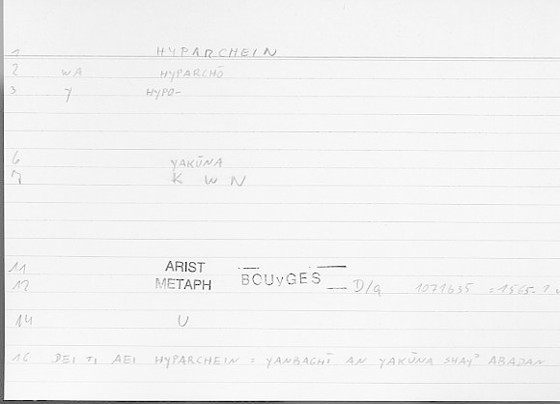 1 HYPARCHEIN
2 WA HYPARCHŌ
3 7 HYPO-
6 YAKŪNA
7 K W N
11 ARIST
12 METAPH BOUYGES D/a 1071b35 = 1565.1
14 U
16 DEI TI AEI HYPARCHEIN = YANBAGHĪ AN YAKŪNA SHAY' ABADAN